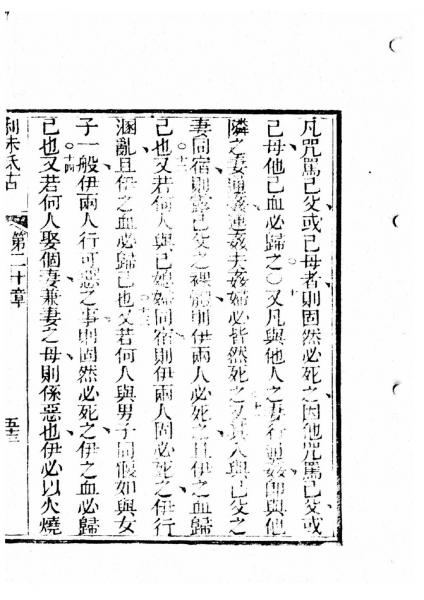 凡咒罵己父或己母者則固然必死之因他咒罵己父或
己母他己血必歸之○又凡與他人之妻行通姦即與他
隣之妻通姦連姦夫姦婦必皆然死之又其人與己父之
妻同宿則露己父之裸體則伊兩人必死之且伊之血歸
己也又若何人與己媳婦同宿則伊兩人固必死之伊行
溷亂且伊之血必歸己也又若何人與男子同偃如與女
子一般伊兩人行可惡之事則固然必死之伊之血必歸
己也又若何人娶個妻兼妻之母則係惡也伊必以火燒
利未氏古 第二十章 五十三